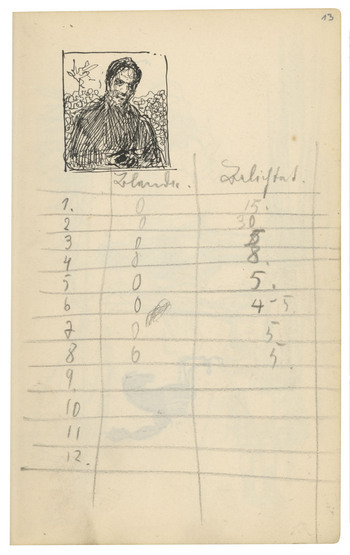 13
Blende. Belichtet.
1. 0 15.
2 0 30
3 0
4 8 8.
5 0 5.
6 0 4-5
7 0 5
8 6 5
9
10
11
12.